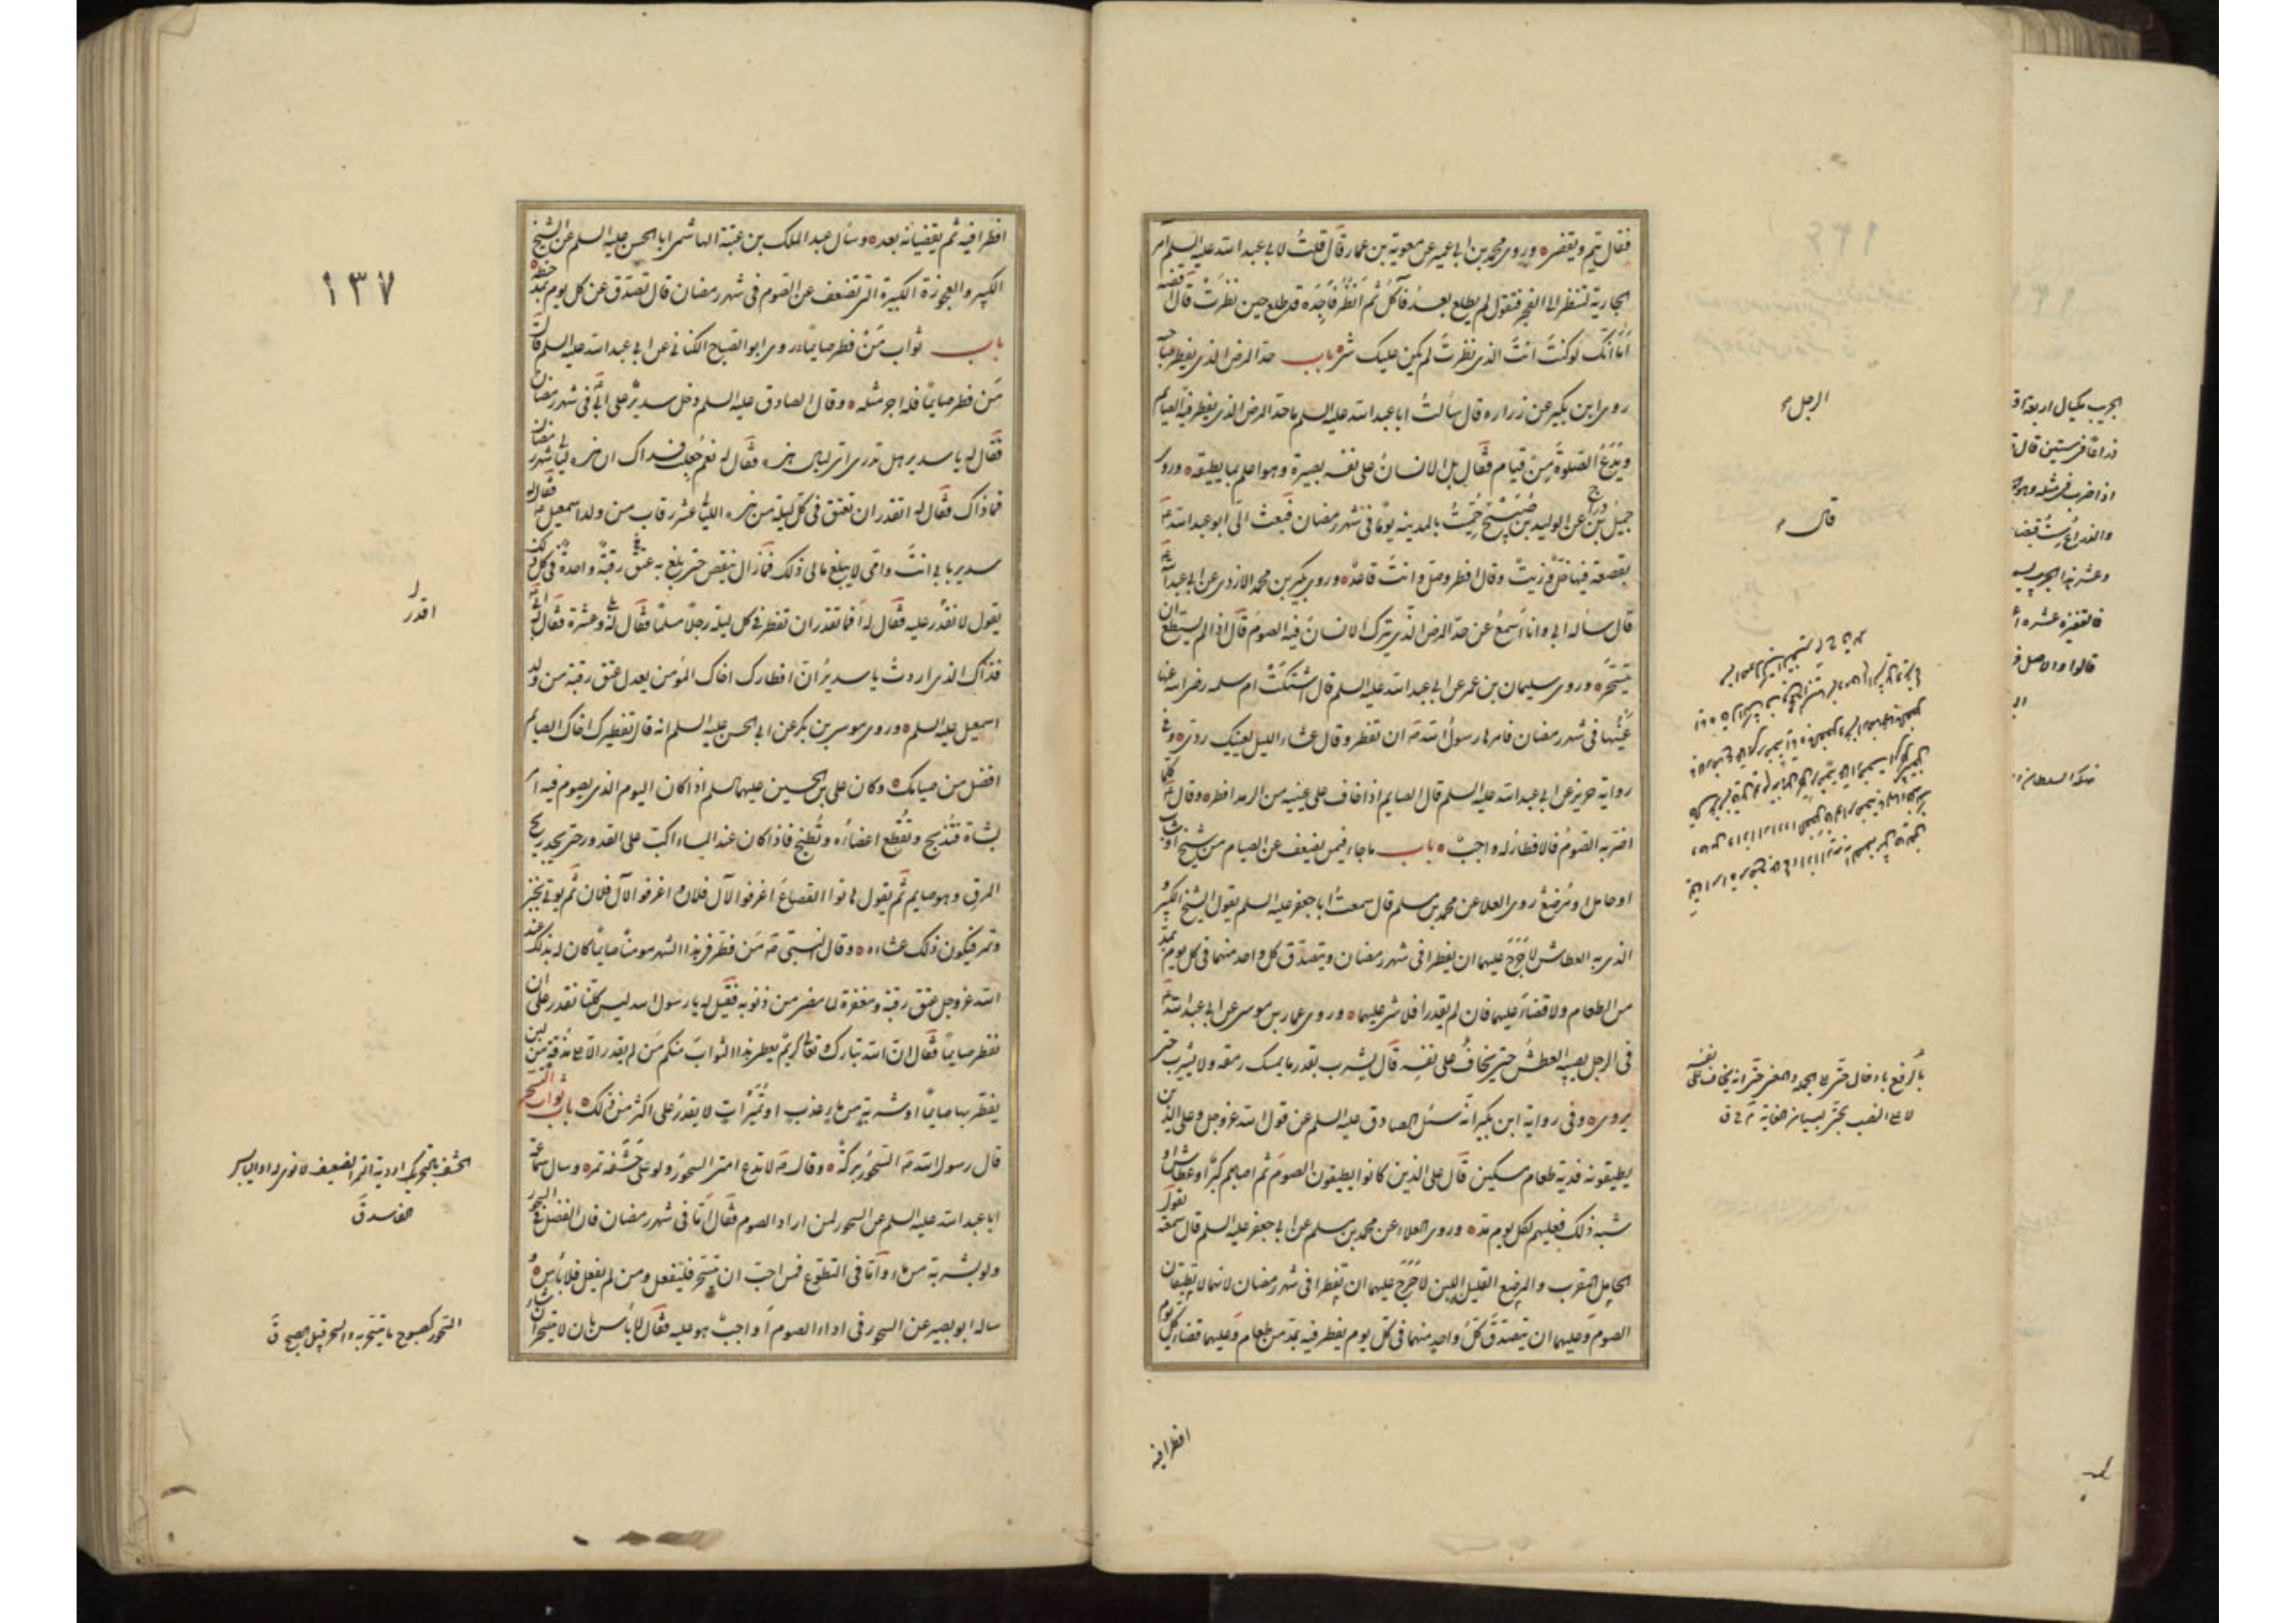 فقال يتم ويقضى ه وروى محمد بن ابى عمير عن معوية بن عمار قال قلت لابى عبد الله عليه السلم آمر
الجارية لتنظر الى الفجر فتقول لم يطلع بعد فآكل ثم انظر فاجده قد طلع حين نظرت قال اقضه
اما انك لو كنت انت الذى نظرت لم يكن عليك شى ه باب حد المرض الذى يفطر صاحبه
روى ابن بكير عن زراره قال سالت ابا عبد الله عليه السلم ما حد المرض الذى يفطر فيه الصايم
ويدع الصلوة من قيام فقال بل الانسان على نفسه بصيرة وهو اعلم بما يطيقه ه وروى
جميل بن دراج عن الوليد بن صبيح حممت بالمدينه يوما فى شهر رمضان فبعث الى ابو عبد الله ع
بقصعة فيها خل وزيت وقال افطر وصل وانت قاعد ه وروى بكير بن محمد الازدى عن ابى عبد الله ع
قال ساله ابى وانا اسمع عن حد المرض الذى يترك الانسان فيه الصوم قال اذا لم يستطع ان
يتسحر ه وروى سليمان بن عمر عن ابى عبد الله عليه السلم قال اشتكت ام سلمه رضى الله عنها
عينها فى شهر رمضان فامرها رسول الله ص ان تفطر وقال عشاء الليل لعينيك ردى ه وفى
رواية حريز عن ابى عبد الله عليه السلم قال الصايم اذا خاف على عينيه من الرمد افطر ه وقال ع كلما
اضر به الصوم فالافطار له واجب ه باب ما جاء فيمن يضعف عن الصيام من شيخ او شاب
او حامل او مرضع روى العلا عن محمد بن مسلم قال سمعت ابا جعفر عليه السلم يقول الشيخ الكبير
الذى به العطاش لا حرج عليهما ان يفطرا فى شهر رمضان ويتصدق كل واحد منهما فى كل يوم بمد
من الطعام ولا قضاء عليهما فان لم يقدرا فلا شى عليهما ه وروى عمار بن موسى عن ابى عبد الله ع
فى الرجل يصيبه العطش حتى يخاف على نفسه قال يشرب بقدر ما يمسك رمقه ولا يشرب حتى
يروى ه وفى رواية ابن بكير انه سئل الصادق عليه السلم عن قول الله عز وجل وعلى الذين
يطيقونه فدية طعام مسكين قال على الذين كانوا يطيقون الصوم ثم اصابهم كبر او عطاش او
شبه ذلك فعليهم لكل يوم مد ه وروى العلاء عن محمد بن مسلم عن ابى جعفر عليه السلم قال سمعته يقول
الحامل المقرب والمرضع القليل اللبن لا حرج عليهما ان تفطرا فى شهر رمضان لانهما لا تطيقان
الصوم وعليهما ان تتصدق كل واحد منهما فى كل يوم يفطر فيه بمد من طعام وعليهما قضاء كل يوم
افطرا فيه
الرجل
قال
١٣٧
افطرا فيه ثم يقضيانه بعد ه وسال عبد الملك بن عتبة الهاشمى ابا الحسن عليه السلم عن الشيخ
الكبير والعجوزة الكبيرة التى تضعف عن الصوم فى شهر رمضان قال تصدق عن كل يوم بمد حنطه ه
باب ثواب من فطر صايما روى ابو الصباح الكنانى عن ابى عبد الله عليه السلم قال
من فطر صايما فله اجر مثله ه وقال الصادق عليه السلم دخل سدير على ابى فى شهر رمضان
فقال له يا سدير هل تدرى اى ليال هذه فقال له نعم جعلت فداك ان هذه ليالى شهر رمضان
فما ذاك فقال له اتقدر ان تعتق فى كل ليلة من هذه الليالى عشر رقاب من ولد اسمعيل ع فقال له
سدير بابى انت وامى لا يبلغ مالى ذلك فما زال ينقص حتى بلغ به عتق رقبة واحدة فى كل ذلك
يقول لا تقدر عليه فقال له افما تقدر ان تفطر فى كل ليله رجلا مسلما فقال له بلى وعشرة فقال له ابى
فذاك الذى اردت يا سدير ان افطارك اخاك المؤمن يعدل عتق رقبة من ولد
اسمعيل عليه السلم ه وروى موسى بن بكر عن ابى الحسن عليه السلم انه قال تفطيرك اخاك الصايم
افضل من صيامك ه وكان على بن الحسين عليهما السلم اذا كان اليوم الذى يصوم فيه امر
بشاة فتذبح وتقطع اعضاؤه وتطبخ فاذا كان عند المساء اكب على القدور حتى يجد ريح
المرق وهو صايم ثم يقول هاتوا القصاع اغرفوا لآل فلان اغرفوا لآل فلان ثم يوتى بخبز
وتمر فيكون ذلك عشاءه ه وقال النبى ص من فطر فى هذا الشهر مومنا صايما كان له بذلك عند
الله عز وجل عتق رقبة ومغفرة لما مضى من ذنوبه فقيل له يا رسول الله ليس كلنا نقدر على ان
نفطر صايما فقال ان الله تبارك وتعالى كريم يعطى هذا الثواب منكم من لم يقدر الا على مذقة من لبن
يفطر بها صايما او شربة من ماء عذب او تميرات لا يقدر على اكثر من ذلك ه باب ثواب السحور
قال رسول الله ص السحور بركة ه وقال ص لا تدع امتى السحور ولو على حشفة تمر ه وسال سماعة
ابا عبد الله عليه السلم عن السحور لمن اراد الصوم فقال اما فى شهر رمضان فان الفضل فى السحور
ولو بشربة من ماء واما فى التطوع فمن احب ان يتسحر فليفعل ومن لم يفعل فلا باس ه و
ساله ابو بصير عن السحور فى اداء الصوم أواجب هو عليه فقال لا باس بان لا يتسحر ان شاء
اقدر
الحشف بالتحريك اردى التمر او الضعيف لا نوى له او اليابس
الفاسد ق
السحور كصبوح ما يتسحر به والسحر قبيل الصبح ق